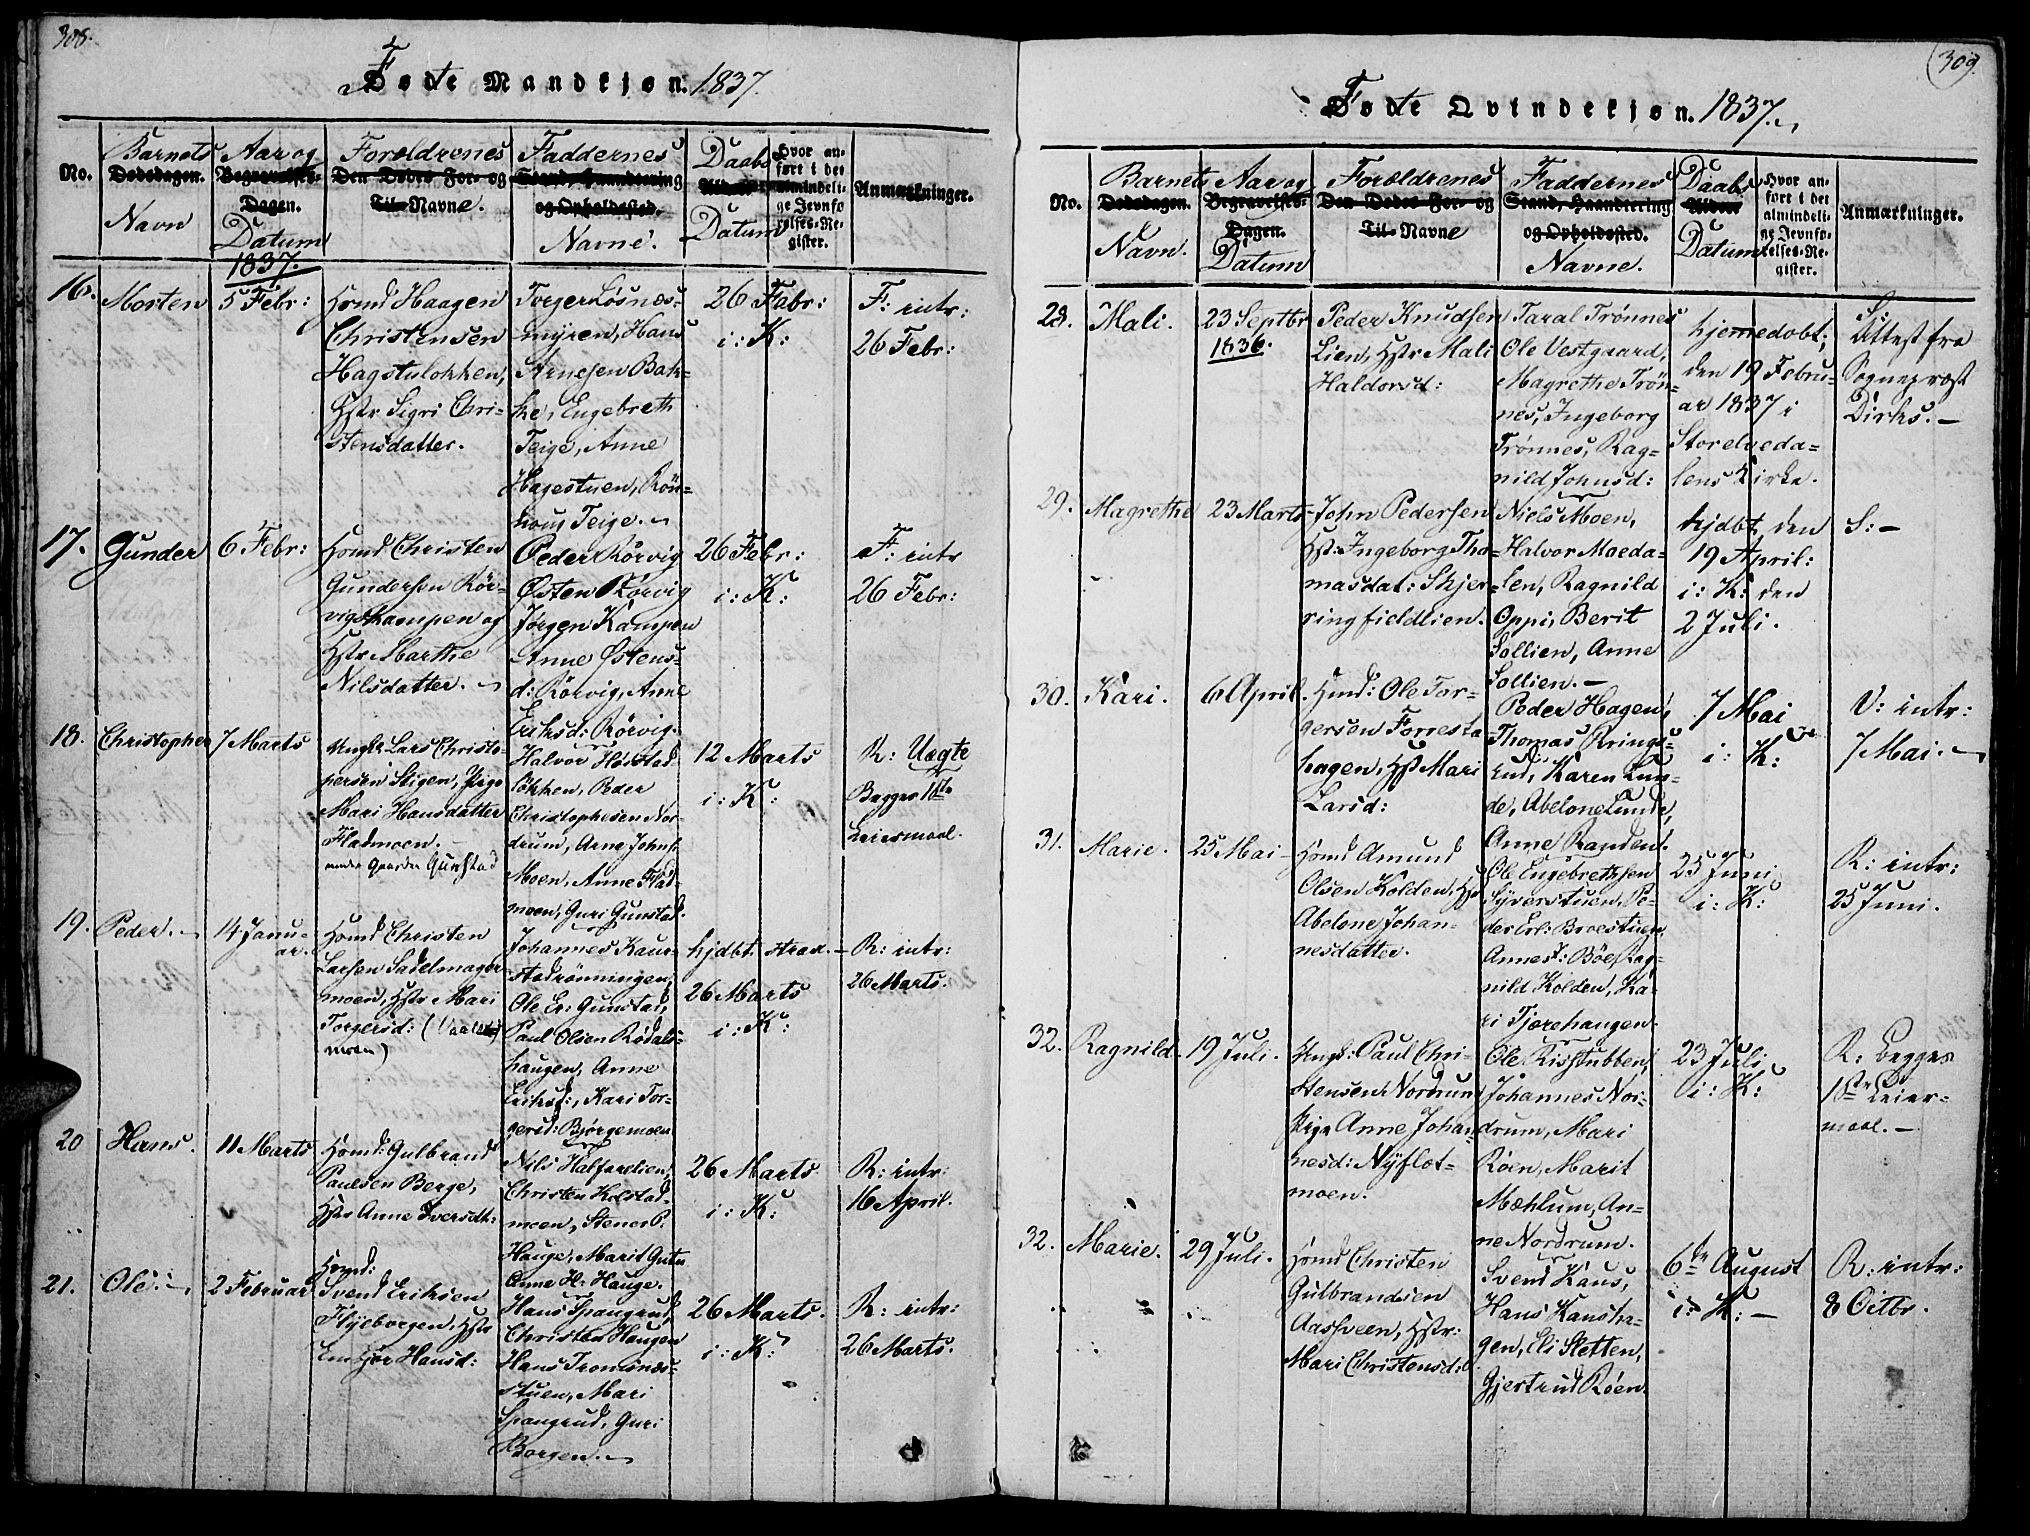 308.
Føde Mandkjøn. 1837.
No.
Barnets
Dødsdagen.
Navn
Aar og
Begravelses-
Dagen.
Datum
1837.
Forældrenes
Den Dødes For- og
Til-Navne.
Faddernes
Stand, Haandtering
og Opholdssted.
Navne.
Daabs
Alder
Datum
Hvor an-
ført i det
almindeli-
ge Jevnfø-
relses-Re-
gister.
Anmærkninger.
16.
Morten
5 Febr:
Hmd Haagen
Christensen
Hagstuløkken,
Hstr Sigri Chri-
stensdatter.
Torger Løsnes-
myren, Hans
Arnesen Bak-
ke, Engebreth
Teige, Anne
Hagestuen, Rön-
noug Teige.
26 Febr:
i: K:
F: intr:
26 Febr:
17.
Gunder
6 Febr:
Hmd Christen
Gundersen Rör-
vigskampen og
Hstr Marthe
Nilsdatter.
Peder Rörvig
Østen Rörvig
Jørgen Kampen
Anne Østens-
d: Rörvig, Anne
Eriksd: Rörvig.
26 Febr:
i: K:
F: intr
26 Febr:
18.
Christopher
7 Marts
Ungk Lars Christo-
phersen Stigen, Pige
Mari Hansdatter
Fladmoen.
under Gaarden Gunstad
Halvor Høistad
løkken, Peder
Christophesen Nor-
drum, Arne Johns.
Moen, Anne Flad-
moen, Guri Gunstad.
12 Marts
i: K:
R: Uægte
Begges 1ste
Leiermaal.
19.
Peder.
14 Janu-
ar.
Hmd Christen
Larsen Sadelmager-
moen, Hstr Mari
Torgersd:
moen)
Johannes Kaur-
stadrönningen,
Ole Er: Gunstad,
Paul Olsen Rødals-
haugen, Anne
Eriksd:, Kari Tor-
gersd: Bjørgemoen
hjdbt. strax.
26 Marts
i: K:
R: intr:
26 Marts.
20
Hans.
11 Marts
Hmd: Gulbrand
Paulsen Berge,
Hstr Anne Iversdt:
Nils Halfarelien,
Christen Kolstad-
moen, Stener P.
Hauge, Marit
Anne H: Hauge.
26 Marts
i: K:
R: intr:
16 April.
21.
Ole.
2 Februar
Hmd:
Svend Eriksen
Flyeborgen, Hstr
Embjør Hansd:
Hans Spangrud,
Christen Haugen
Hans Tromsnes-
stuen, Mari
Spangrud, Guri
Borgen.
26 Marts.
i: K:
R: intr:
26 Marts.
309.
Føde Qvindekjøn. 1837.
No.
Barnets
Dødsdagen.
Navn.
Aar og
Begravelses-
Dagen.
Datum
Forældrenes
Den Dødes For- og
Til-Navne
Faddernes
Stand, Haandtering
og Opholdssted.
Navne.
Daabs
Alder
Datum
Hvor an-
ført i det
almindeli-
ge Jevnfø-
relses-Re-
gister.
Anmærkninger.
28.
Mali.
23 Septbr
1836.
Peder Knudsen
Lien, Hstr Mali
Haldorsd:
Taral Trønnes
Ole Vestgaard,
Magrethe Trön-
nes, Ingeborg
Trönnes, Rag-
nild Johnsd:
hjemedøbt;
den 19 Febru-
ar 1837 i
Storelveda-
lens Kirke.
S.
Attest fra
Sogneprest
Dirks.
29.
Magrethe
23 Marts
John Pedersen
Hst: Ingeborg Tho-
masdat: Skjer-
ringfieldlien.
Niels Moen,
Halvor Moeda-
len, Ragnild
Oppi, Berit
Sollien, Anne
Sollien.
hjdbt, den
19 April:
i: K: den
2 Juli.
S:
30.
Kari.
6 April.
Hmd: Ole Tor-
gersen Forresta
hagen, Hst Mari
Larsd:
Peder Hagen,
Thomas Rings-
rud, Karen Lun-
de, Abelone Lunde,
Anne Randen.
7 Mai
i: K:
V: intr:
7 Mai.
31.
Marie.
25 Mai
Hmd Amund
Olsen Kolden, Hstr
Abelone Johan-
nesdatter.
Ole Engebrethsen
Syverstuen, Pe-
der Erl: Broestuen
Anne J: Böe, Rag-
nild Kolden, Ka-
ri Tjærehaugen.
25 Juni
i: K:
R: intr:
25 Juni.
32.
Ragnild.
19 Juli.
Ungk: Paul Chri-
stensen Nordrum
Pige Anne Johan-
nesd: Nÿflot-
moen.
Ole Risstubben,
Johannes Nor-
drum, Mari
Röen, Marit
Mæhlum, An-
ne Nordrum.
23 Juli
i: K:
R: Begges
1ste Leier-
maal.
32.
Marie.
29 Juli.
Hmd Christen
Gulbrandsen
Aassveen, Hstr:
Mari Christensd:
Svend Kaus,
Hans Kausha-
gen, Eli Sletten,
Gjertrud Röen.
6te August
i: K:
R: intr:
8 Octbr.